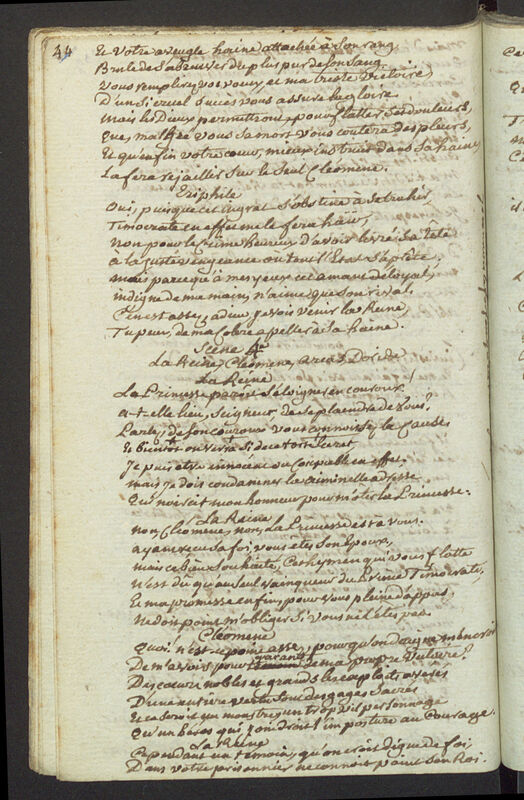 44
Et Votre aveugle haine attachée à Son rang,
Brule de S'abreuver du plus pur de Son Sang.
Vous remplirez vos voeux, et ma triste Victoire
D'un Si cruel Succès vous assure la gloire
Mais les Dieux permettront, pour flatter Ses douleurs,
Que, malgré vous Sa mort Vous coutera des pleurs,
Et qu'enfin votre coeur, mieux instruit dans Sa haine
La fera rejaillir Sur le Seul Cléomene.
Eriphile
Oui, puisque cet ingrat S'obstine à Se trahir,
Timocrate en effet me le fera haïr,
Non pour le crime heureux d'avoir livré Sa tête
à la juste vengeance où tout l'Etat S'aprête.
mais parce qu'à mes yeux cet amant déloyal,
indigne de ma main, n'aime que Son rival.
C'en est assez, adieu, je vois venir la Reine,
Tu peux, de ma Colere apeller à Sa haine.
Scene 4e
La Reine, Cleomene, arcas, Doride
La Reine
La Princesse paroit S'éloigner en couroux
a-t-elle lieu, Seigneur, de Se plaindre de Vous?
Parlez, de Son couroux vous connoissez la Cause
Et bientot on verra Si
Je puis etre innocent ou Coupable en effet
mais je dois condamner la criminelle adresse
Qui noircit mon honneur pour m'oter la Princesse.
La Reine
non, Cleomene, non, la Princesse est a vous.
ayant recu Sa foi, vous êtes Son Epoux,
mais ce bien Souhaité, Cet hymen qui vous flatte
N'est dû qu'au Seul vainqueur du Prince Timocrate,
Et ma promesse enfin, pour vous pleine d'appas,
Ne doit point m'obliger Si Vous ne l'êtes pas
Cleomene
Quoi! n'est-ce point assez, pour qu'on daigne m'en croire
De m'avoir pour garant de ma propre Victoire?
Des coeurs nobles et grands les exploits avérés
D'une entiere vertu Sont des gages Sacrés
Et ce Seroit un monstrueux trop vil personnage
Qu'un héros qui joindroit l'imposture au Courage.
La Reine
Cependant un temoin, qu'on croit digne de foi,
Dans votre prisonnier ne connoit point Son Roi.